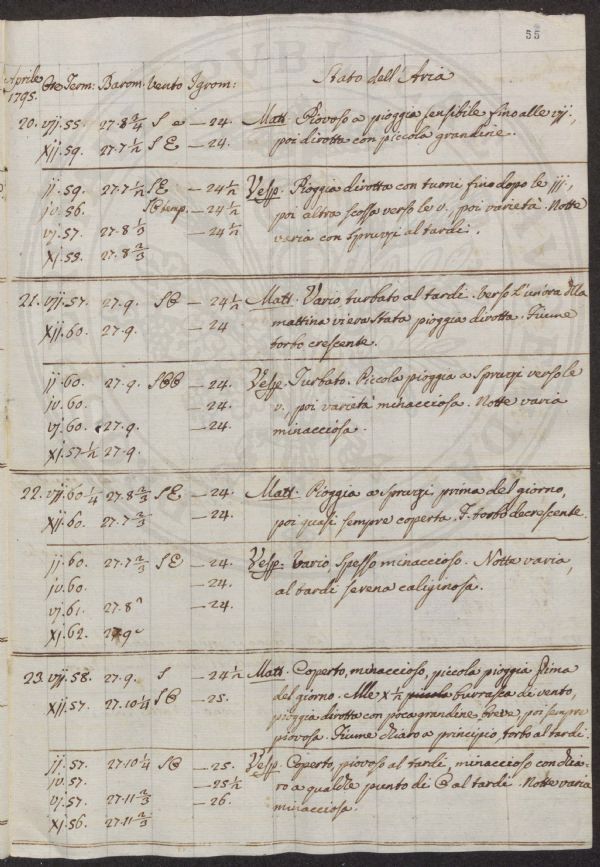 55
Aprile 1795. Ore Term: Barom: Vento Igrom: Stato dell'Aria
20. vij. 55. 27.8 3/4 S e — 24. Matt. Piovoso a pioggia sensibile fino alle vij,
xij. 59. 27.7 1/2 S E — 24. poi dirotta con piccola grandine.
ij. 59. 27.7 1/2 S E — 24 1/2 Vesp. Pioggia dirotta con tuoni fino dopo le iij,
iv. 56. — 24 1/2 poi altra scossa verso le v., poi varietà. Notte
vj. 57. 27.8 1/3 — 24 1/2 varia con spruzzi al tardi.
xj. 55. 27.8 2/3
21. vij. 57. 27.9. — 24 1/2 Matt. Vario turbato al tardi. Verso l'un'ora della
xij. 60. 27.9. — 24 mattina vi era stata pioggia dirotta. Fiume
torbo crescente.
ij. 60. 27.9. — 24. Vesp. Turbato. Piccola pioggia a spruzzi verso le
iv. 60. — 24. v., poi varietà minacciosa. Notte varia
vj. 60. 27.9. — 24. minacciosa.
xj. 57 1/2 27.9.
22. vij. 60 1/4 27.8 2/3 S E — 24. Matt. Pioggia a spruzzi prima del giorno,
xij. 60. 27.7 2/3 — 24. poi quasi sempre coperta. F. torbo decrescente.
ij. 60. 27.7 2/3 S E — 24. Vesp. Vario, spesso minaccioso. Notte varia,
iv. 60. — 24. al tardi serena caliginosa.
vj. 61. 27.8 — 24.
xj. 62. 27.9
23. vij. 58. 27.9. S — 24 1/2 Matt. Coperto, minaccioso, piccola pioggia prima
xij. 57. 27.10 1/4 — 25. del giorno. Alle x 1/2 burrasca di vento,
pioggia dirotta con poca grandine, breve, poi sempre
piovosa. Fiume chiaro a principio, torbo al tardi.
ij. 57. 27.10 1/4 — 25. Vesp. Coperto, piovoso al tardi, minaccioso con chia-
iv. 57. — 25 1/2 ro a qualche punto di al tardi. Notte varia
vj. 57. 27.11 2/3 — 26. minacciosa.
xj. 56. 27.11 2/3